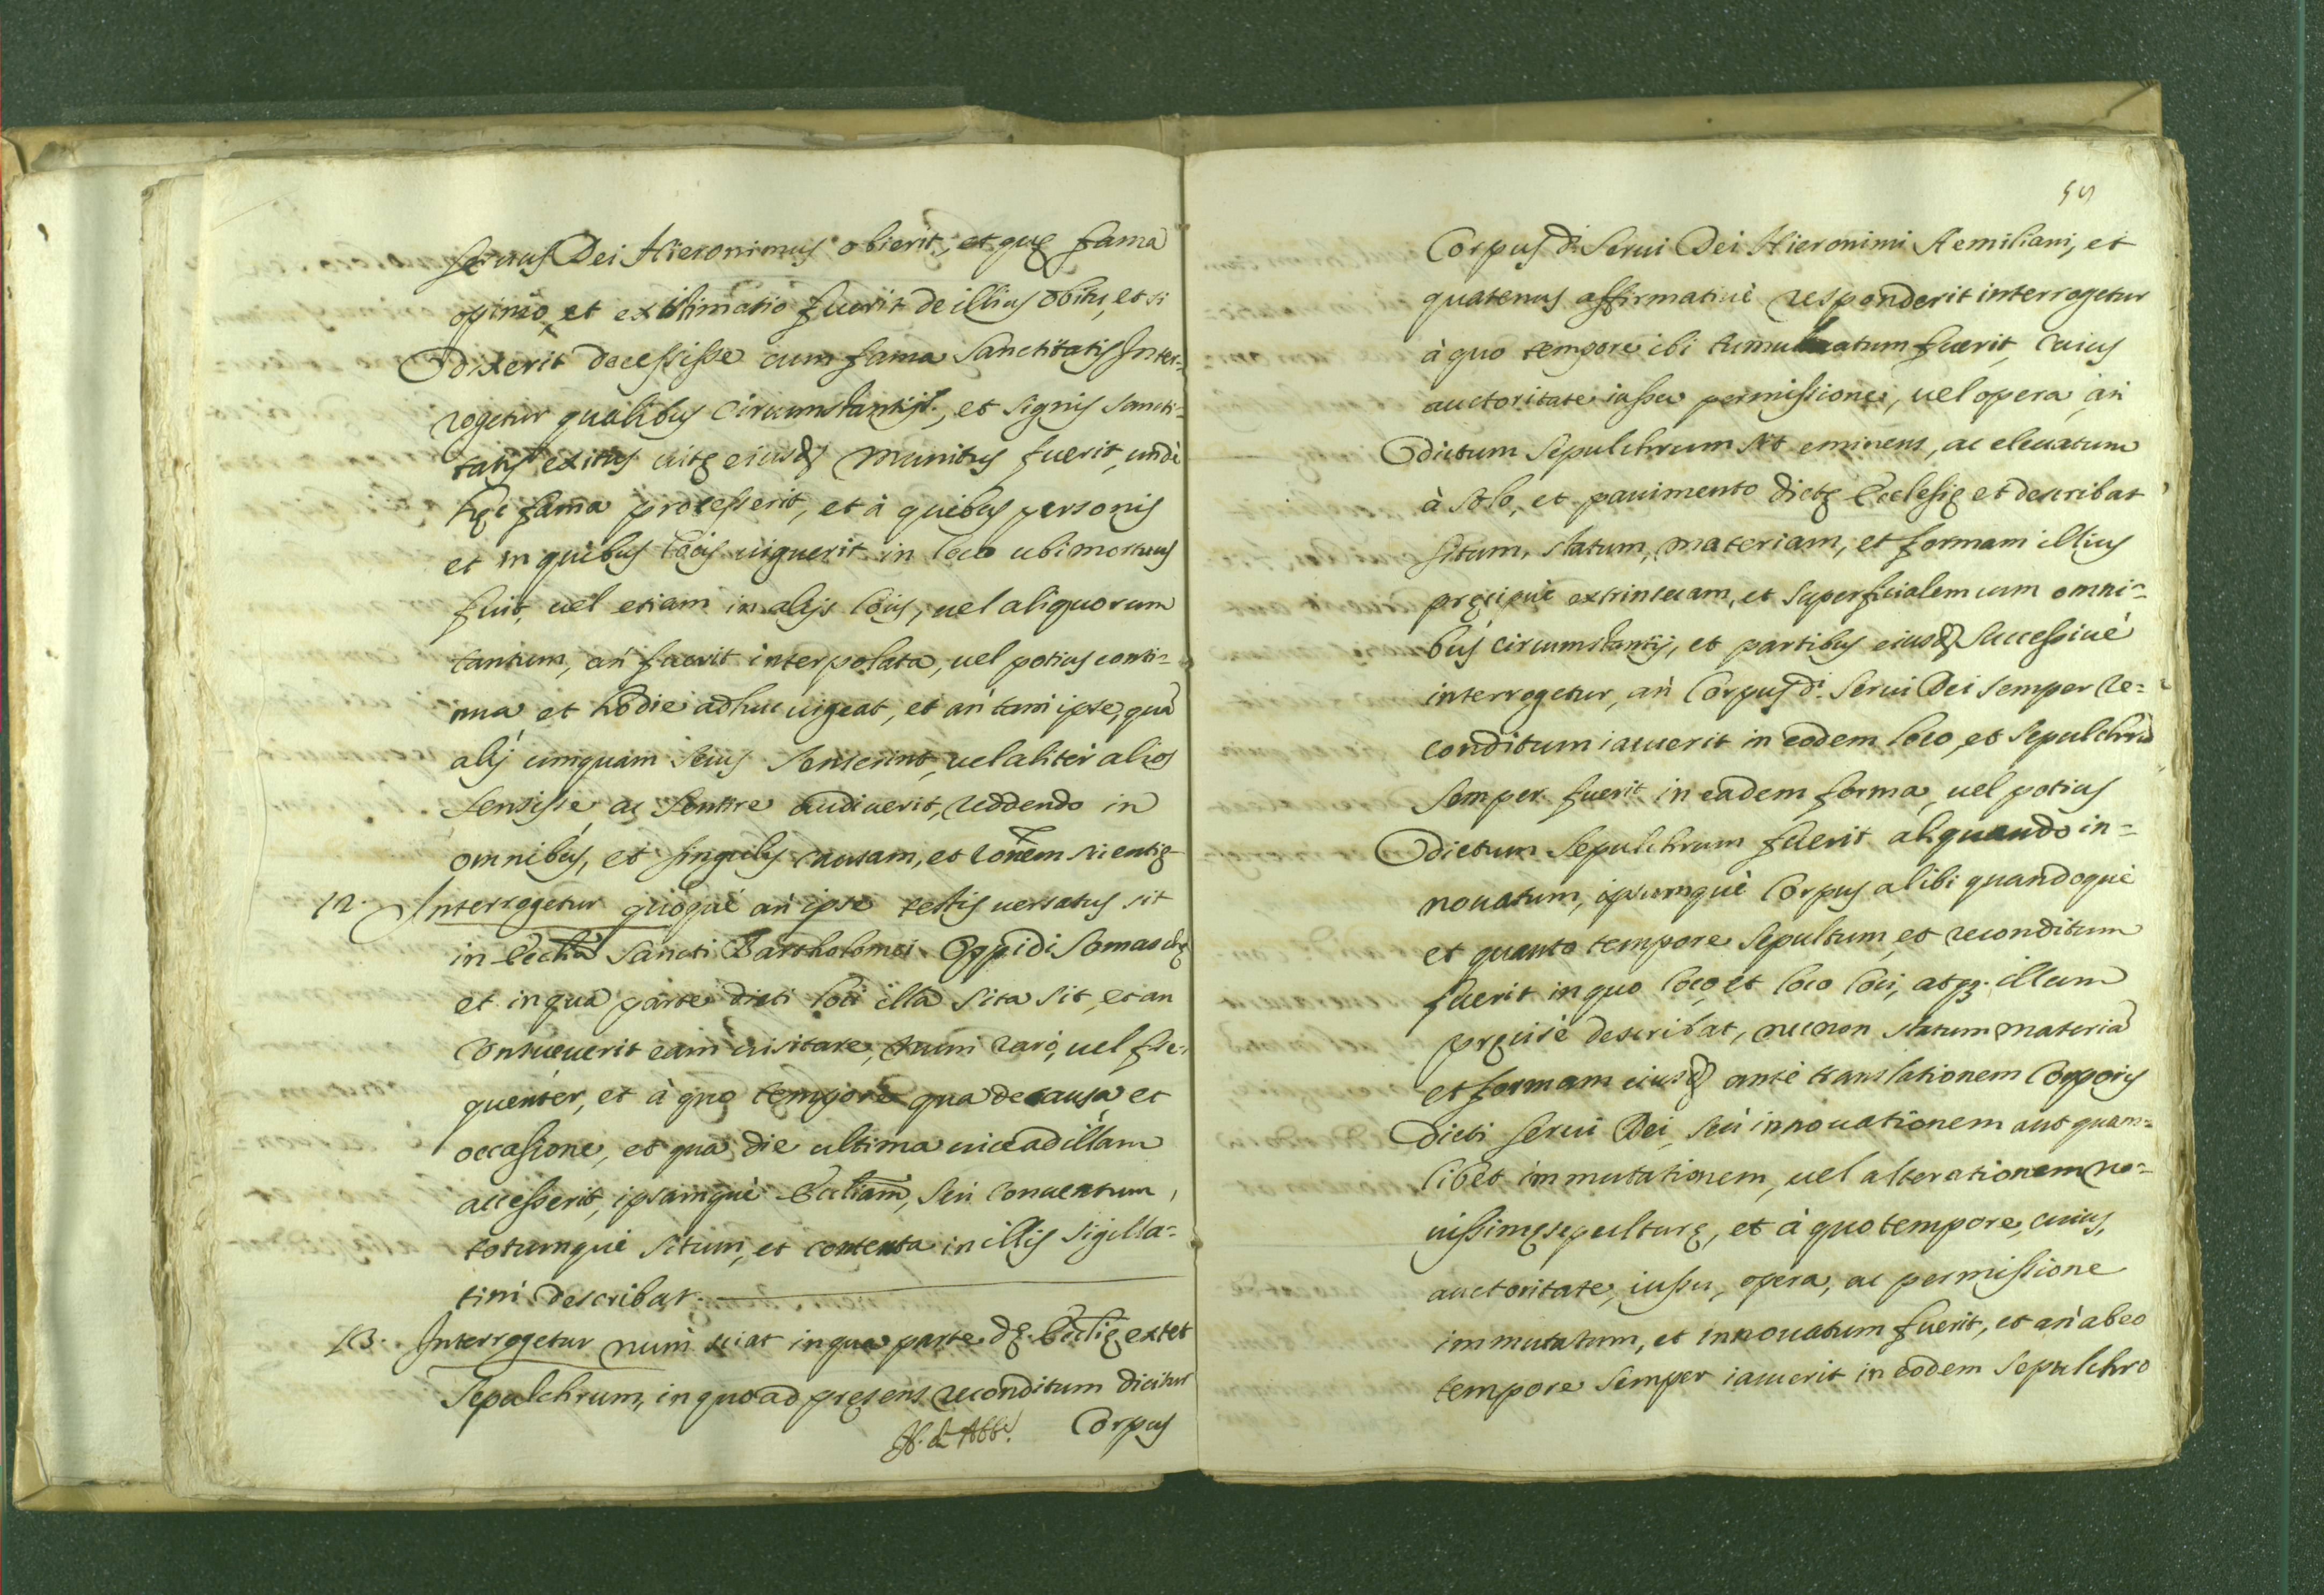 seruus Dei Hieronimus obierit, et quę fama
opinio, et existimatio fuerit de illius obitu, et si
dixerit decessisse cum fama sanctitatis Inter-
rogetur qualibus circumstantijs, et signis sancti-
tatis exitus uitę eiusd. munitus fuerit, undè
hęc fama processerit, et à quibus personis
et in quibus locis uiguerit in loco ubi mortuus
fuit, uel etiam in alijs locis, uel aliquorum
tantum, an fuerit interpolata, uel potius conti=
nua et hodie adhuc uigeat, et an tam ipse, quã
alij umquam secus senserint, uel aliter alios
sensisse ac sentire audiuerit, reddendo in
omnibus, et singulis causam, et rõnem scientię
12. Interrogetur quoque an ipse testis uersatus sit
in Ecclia Sancti Bartholomei Oppidi Somaschę
et in qua parte dicti loci illa sita sit, et an
consueuerit eam uisitare, num raro, uel fre-
quenter, et à quo tempore qua de causa et
occasione, et qua die ultima uice ad illam
accesserit, ipsamque Eccliam, seu conuentum,
totumque situm, et contenta in illis sigilla=
tim describat.
13. Interrogetur num sciat in qua parte dę. Eccłię extet
Sepulchrum, in quo ad pręsens reconditum dicitur
Corpus
59
Corpus di. Serui Dei Hieronimi Aemiliani, et
quatenus affirmatiuè responderit interrogetur
à quo tempore ibi tumulatum fuerit, cuius
auctoritate iussu permissione, uel opera an
dictum Sepulchrum sit eminens, ac eleuatum
à solo, et pauimento dictę Ecclesię et describat
situm, statum, materiam, et formam illius
pręcipuè extrinsecam, et superficialem cum omni=
bus circumstantijs, et partibus eiusd. successiuè
interrogetur, an Corpus di. Serui Dei semper re=
conditum iacuerit in eodem loco, et sepulchrũ
semper fuerit in eadem forma, uel potius
dictum Sepulchrum fuerit aliquando in=
nouatum, ipsumque Corpus alibi quandoque
et quanto tempore sepultum, et reconditum
fuerit in quo loco, et loco loci, atq3. illum
pręcisè describat, necnon statum materiã
et formam eiusd. ante translationem Corporis
dicti serui Dei, seu innouationem aut quam=
libet immutationem, uel alterationem no=
uissimę sepulturę, et à quo tempore, cuius,
auctoritate, iussu, opera, ac permissione
immutatum, et innouatum fuerit, et an ab eo
tempore semper iacuerit in eodem sepulchro